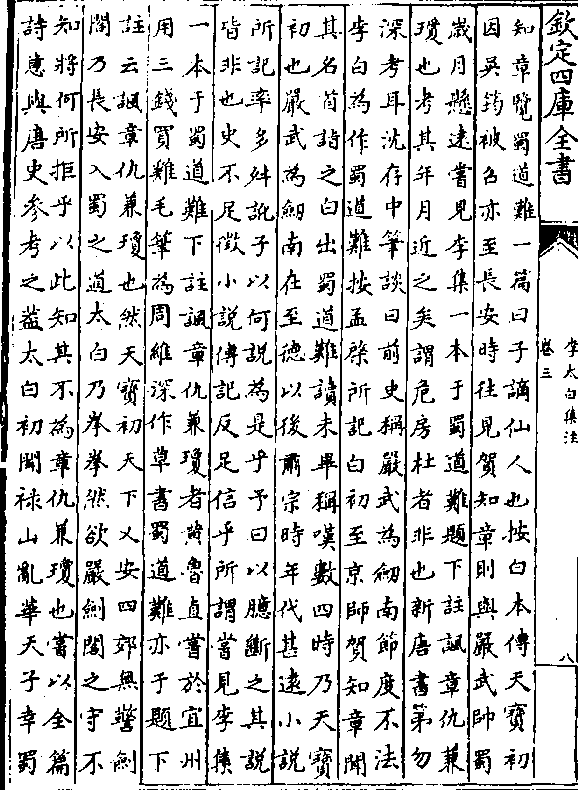 欽定四庫全書
李太白集注
卷三
八
知章覽蜀道難一篇曰子謫仙人也按白本傳天寶初
因吳筠被召亦至長安時往見賀知章則與嚴武帥蜀
歲月懸遠嘗見李集一本于蜀道難題下註諷章仇兼
瓊也考其年月近之矣謂危房杜者非也新唐書第勿
深考耳沈存中筆談曰前史稱嚴武為劒南節度不法
李白為作蜀道難按孟棨所記白初至京師賀知章聞
其名首詣之白出蜀道難讀未畢稱嘆數四時乃天寶
初也嚴武為劒南在至德以後肅宗時年代甚遠小說
所記率多舛訛予以何說為是乎予曰以臆斷之其說
皆非也史不足徵小說傳記反足信乎所謂嘗見李集
一本于蜀道難下註諷章仇兼瓊者黄魯直嘗於宜州
用三錢買雞毛筆為周維深作草書蜀道難亦于題下
註云諷章仇兼瓊也然天寶初天下乂安四郊無警劒
閣乃長安入蜀之道太白乃拳拳然欲嚴劍閣之守不
知將何所拒乎以此知其不為章仇兼瓊也嘗以全篇
詩意與唐史參考之葢太白初聞祿山亂華天子幸蜀